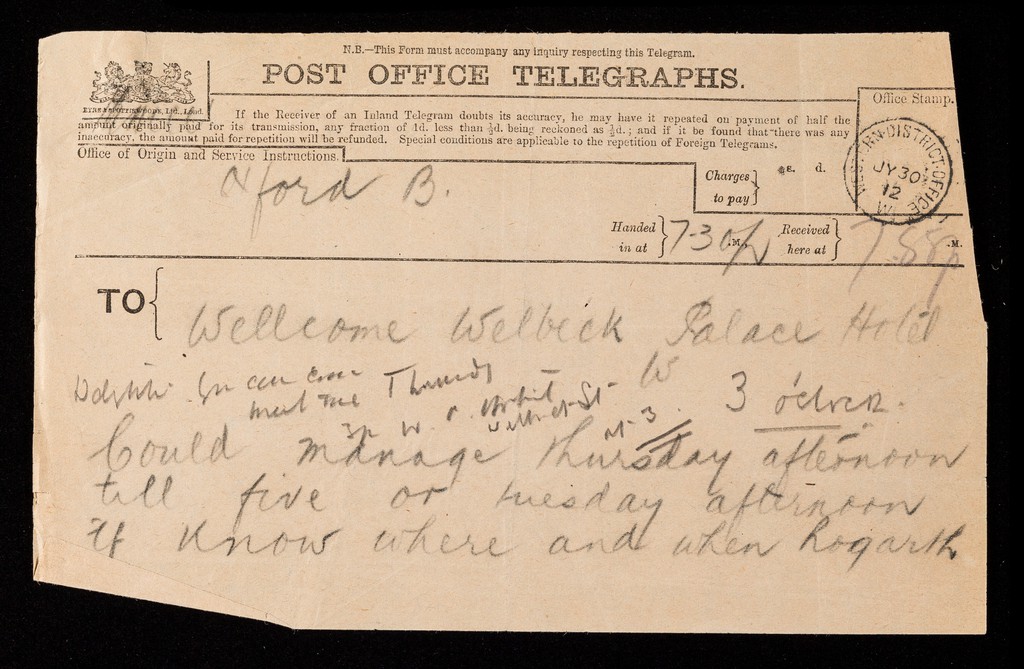 N.B.—This Form must accompany any inquiry respecting this Telegram.
POST OFFICE TELEGRAPHS.
If the Receiver of an Inland Telegram doubts its accuracy, he may have it repeated on payment of half the
amount originally paid for its transmission, any fraction of 1d. less than ½d. being reckoned as ½d.; and if it be found that there was any
inaccuracy, the amount paid for repetition will be refunded. Special conditions are applicable to the repetition of Foreign Telegrams.
Office Stamp.
WESTERN·DISTRICT·OFFICE
JY 30
12
W.
Office of Origin and Service Instructions.
Oxford B.
Charges
to pay
s. d.
Handed
in at
7-30p
.M.
Received
here at
7.55p
.M.
TO
Wellcome Welbeck Palace Hotel
W
3 o'clock.
you can come
meet me Thursday
at 3
Could manage thursday afternoon
till five or tuesday afternoon
if know where and when hogarth